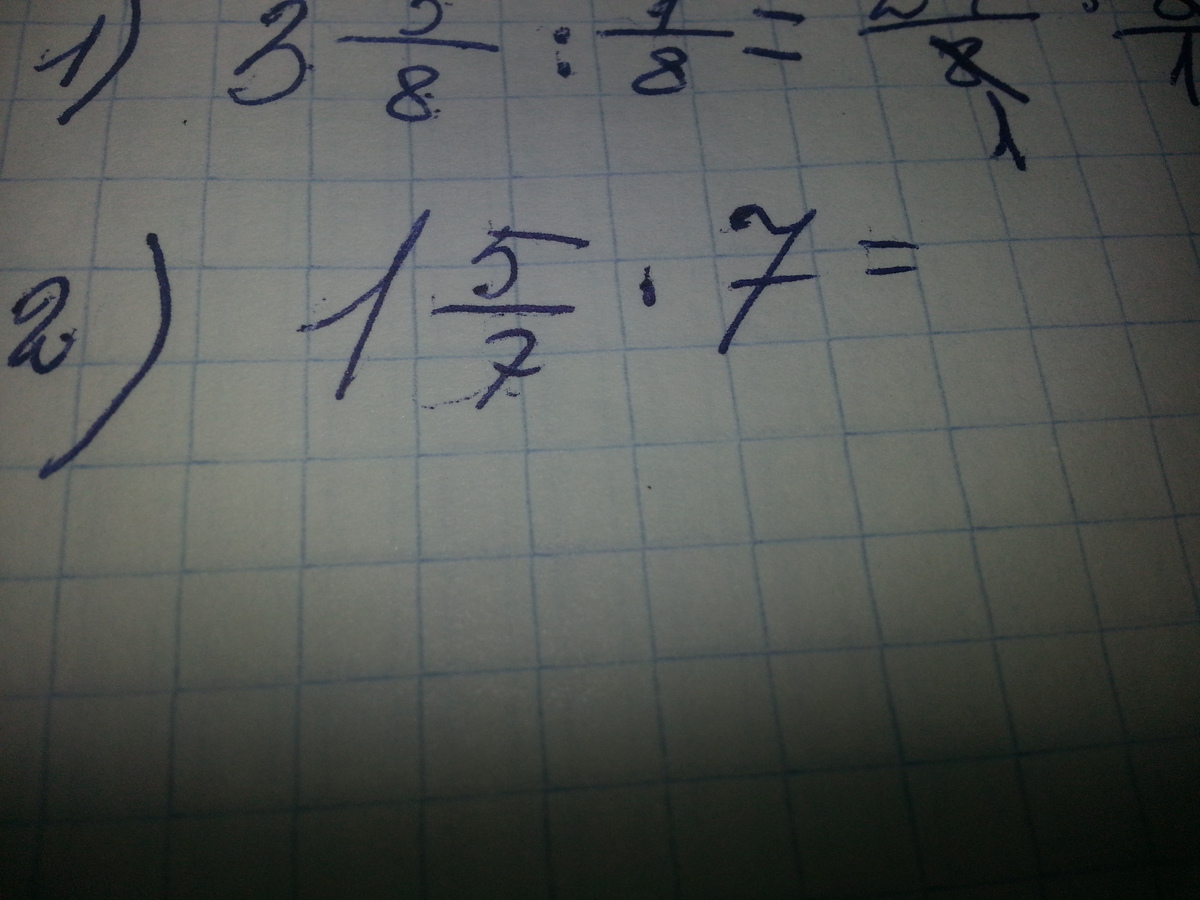 1) 3 5/8 : 1/8 = /8 · 8/1
1
2) 1 5/7 · 7 =